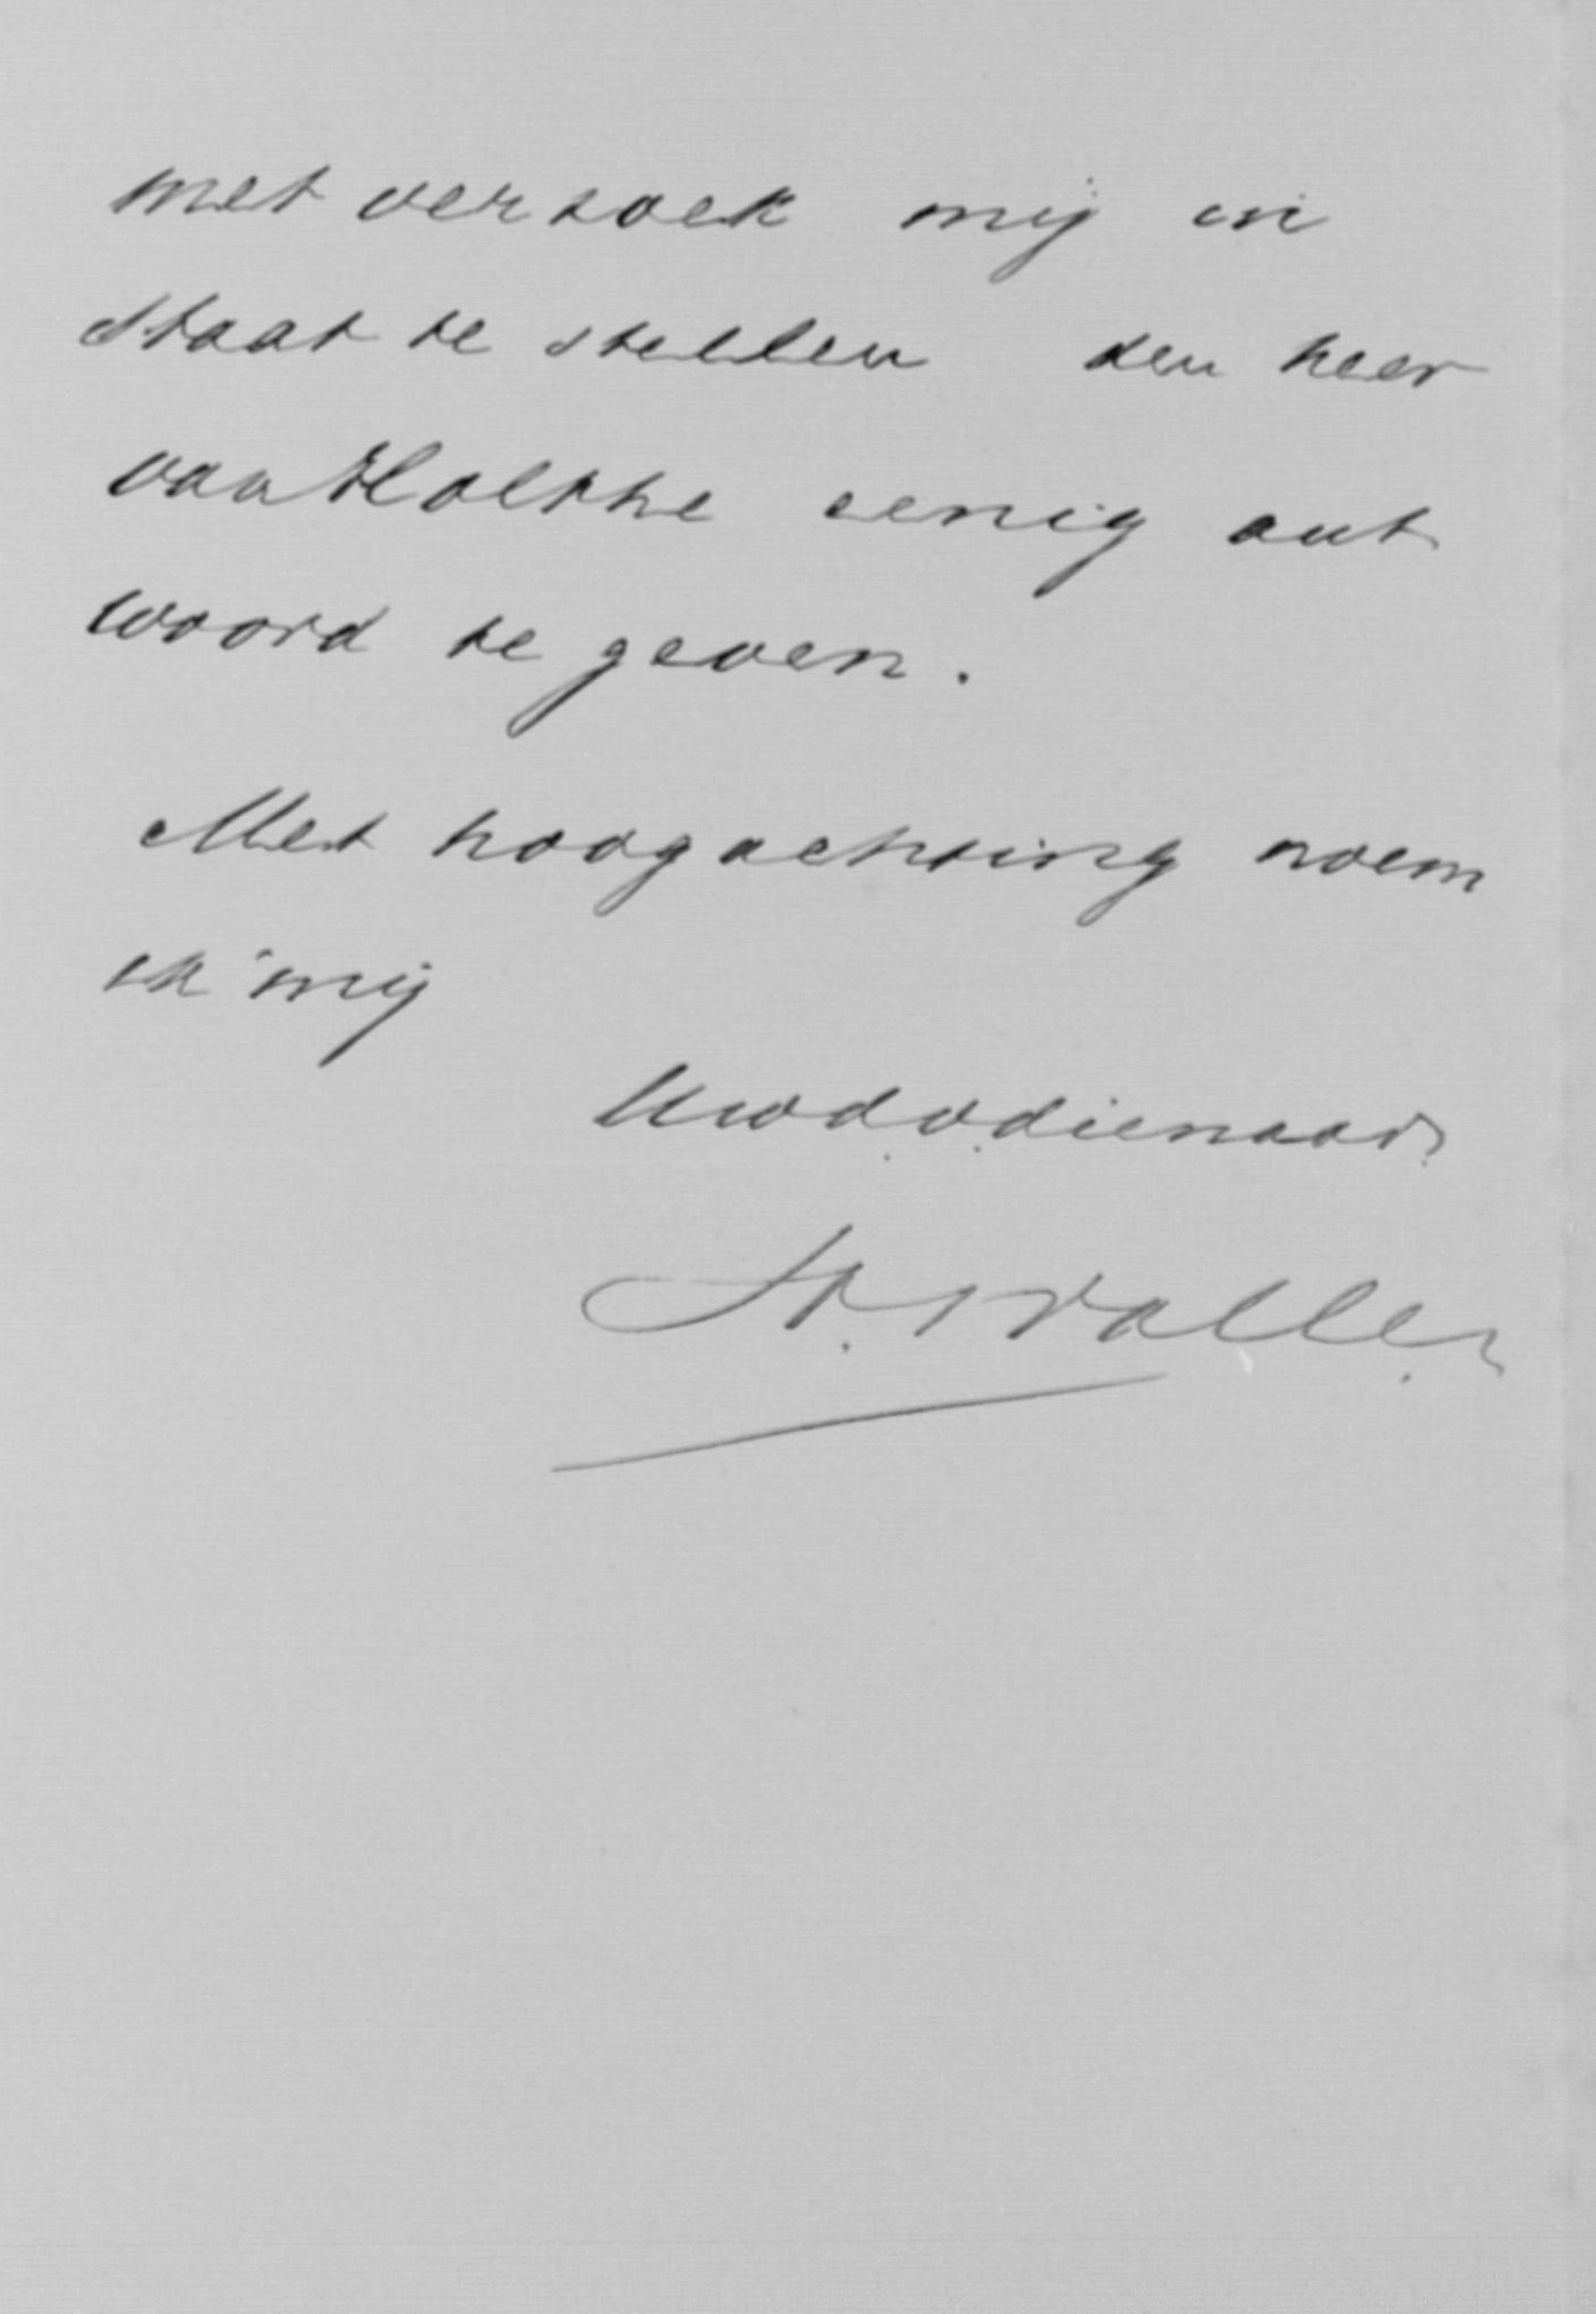 met verzoek mij in
staat te stellen den heer
van Holthe eenig ant
woord te geven.
Met hoogachting noem
ik mij
Uwd.v.dienaar
Waller